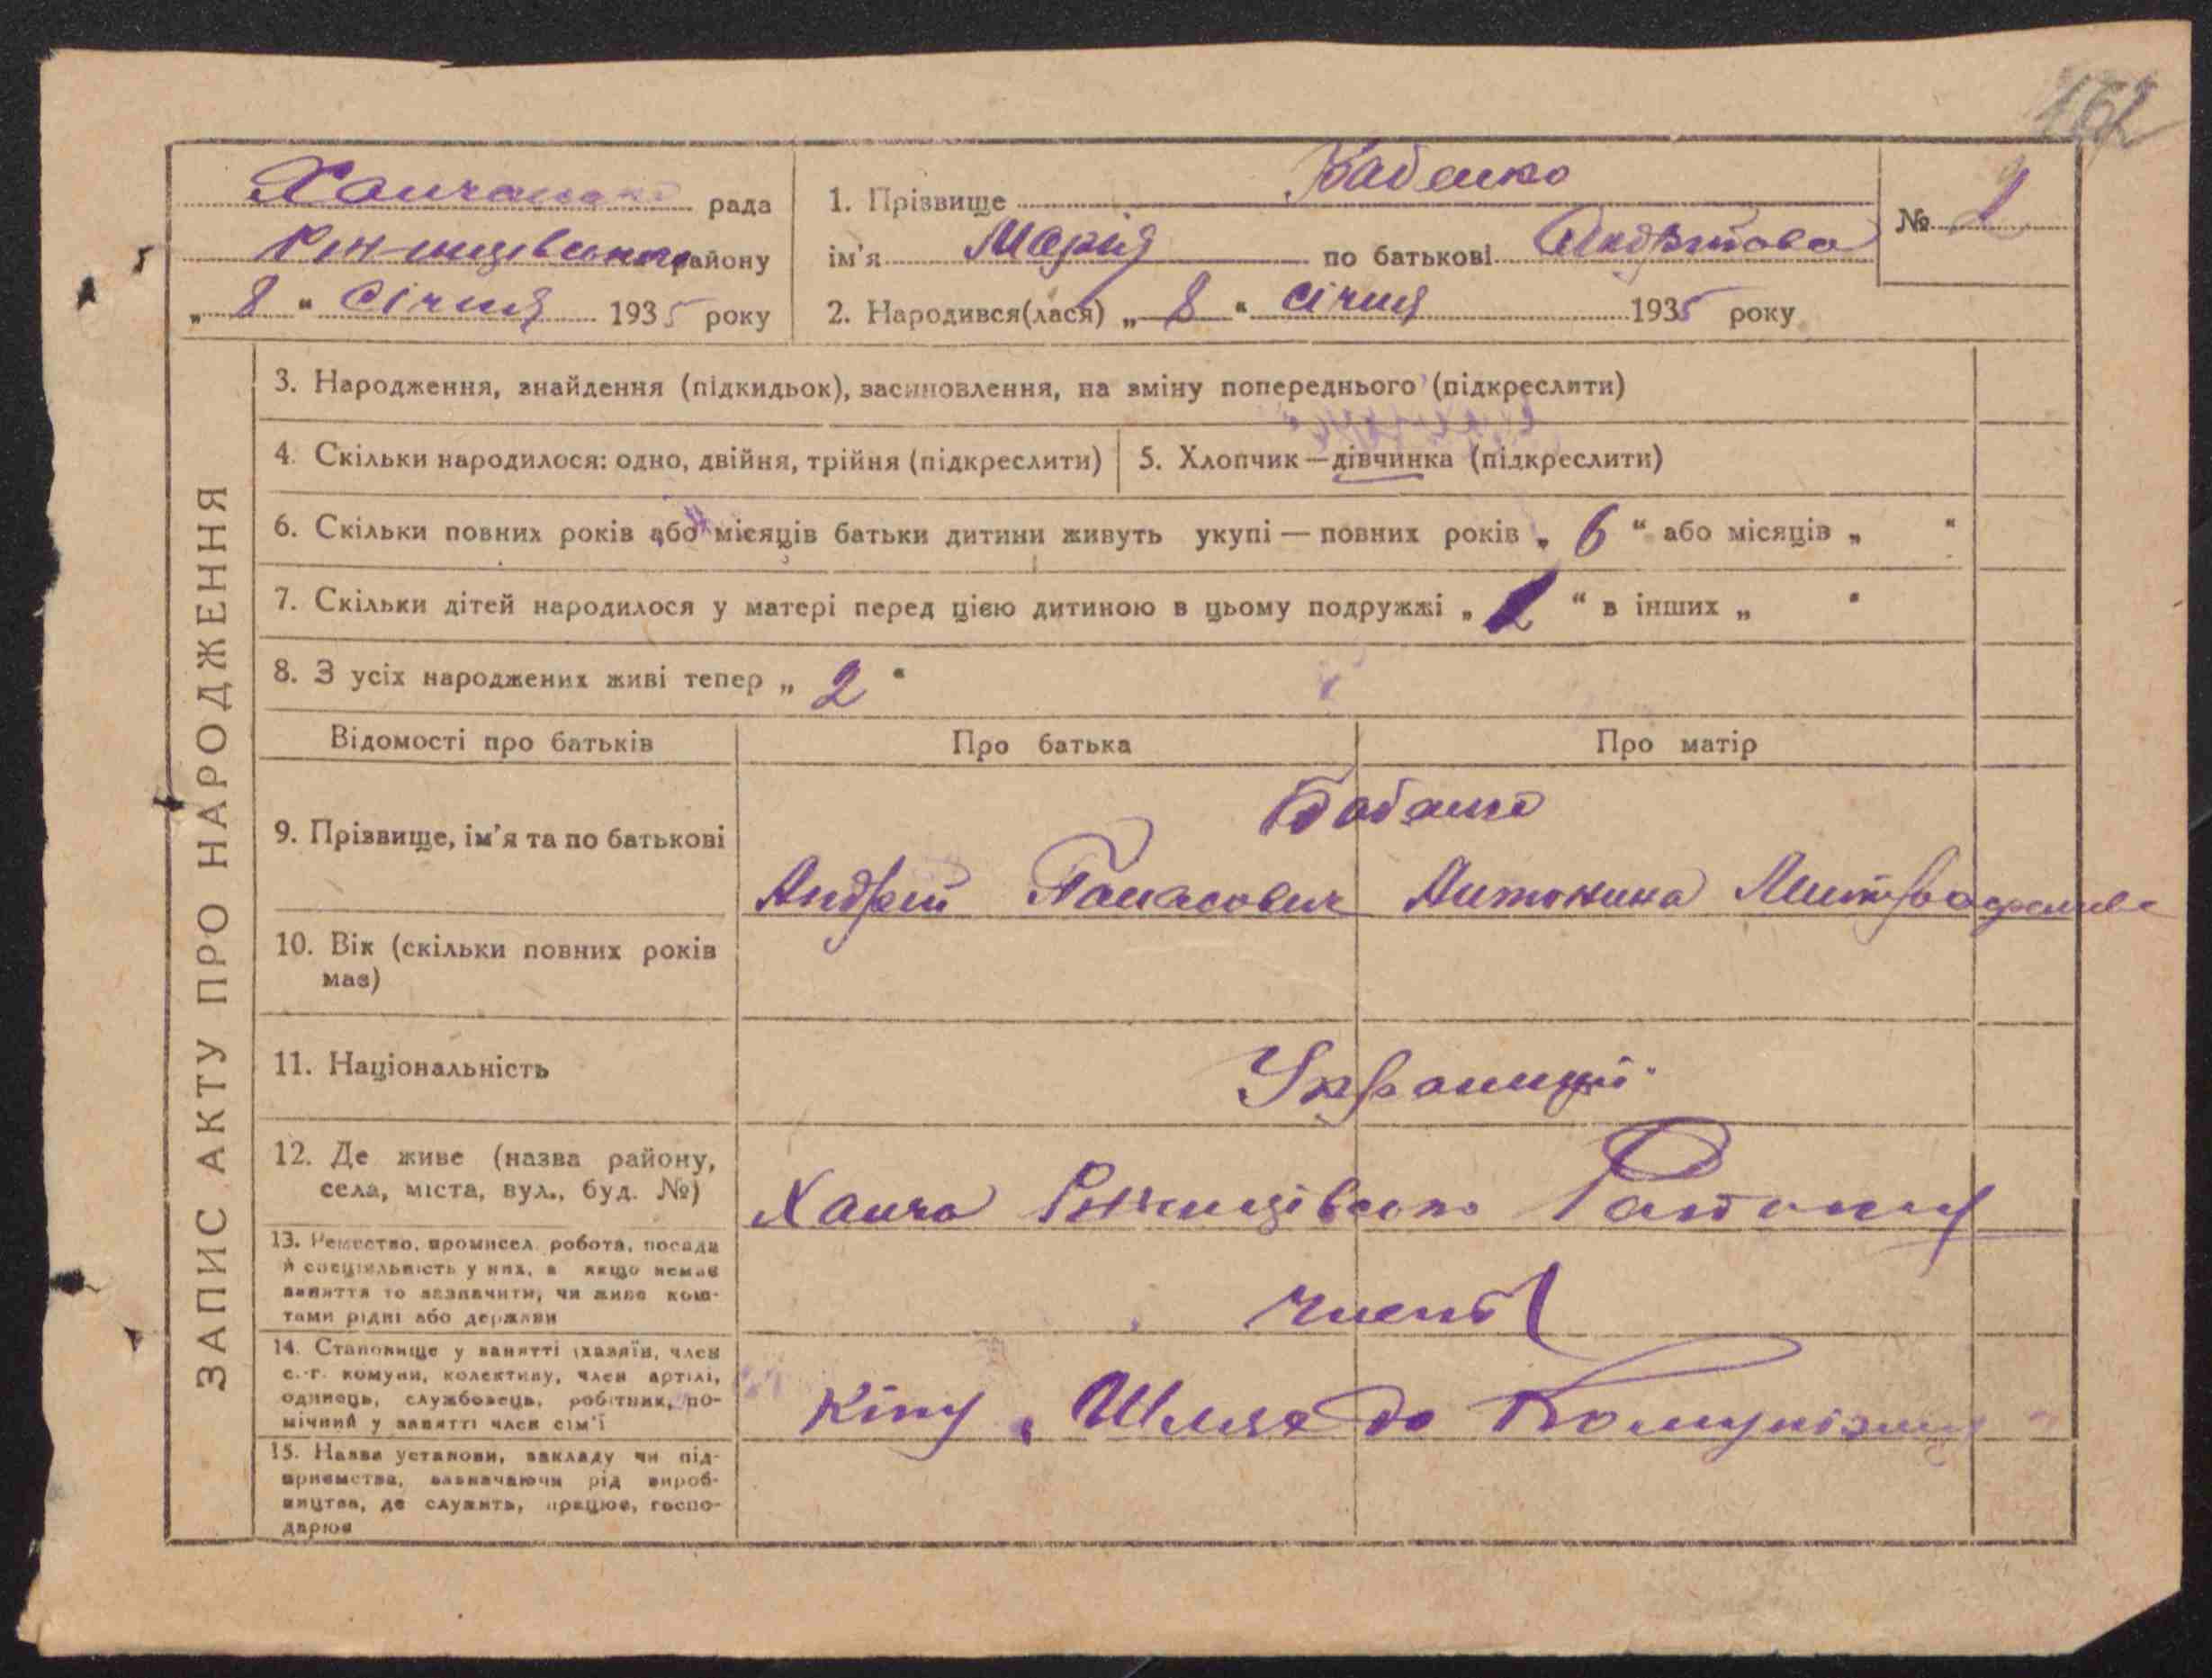 162
рада
району
„ 8 “ Січня 1935 року
1. Прізвище Бабенко
ім'я Марія по батькові
2. Народився(лася) „ 8 “ Січня 1935 року
№
ЗАПИС АКТУ ПРО НАРОДЖЕННЯ
3. Народження, знайдення (підкидьок), засиновлення, на зміну попереднього (підкреслити)
4. Скільки народилося: одно, двійня, трійня (підкреслити)
5. Хлопчик—дівчинка (підкреслити)
6. Скільки повних років або місяців батьки дитини живуть укупі — повних років „ 6 “ або місяців „ “
7. Скільки дітей народилося у матері перед цією дитиною в цьому подружжі „ “ в інших „ “
8. З усіх народжених живі тепер „ 2 “
Відомості про батьків
Про батька
Про матір
9. Прізвище, ім'я та по батькові
Бабенко
Андрей Панасович
Антонина
10. Вік (скільки повних років
має)
11. Національність
Українці
12. Де живе (назва району,
села, міста, вул., буд. №)
Району
13. Ремество, промисел, робота, посада
й спеціяльність у них, а якщо немає
заняття то зазначити, чи живе кош-
тами рідні або держави
члени
14. Становище у занятті (хазяїн, член
с.-г. комуни, колективу, член артілі,
одинець, службовець, робітник, по-
мічний у занятті член сім'ї
Шлях до Комунізму
15. Назва установи, закладу чи під-
приємства, зазначаючи рід вироб-
ництва, де служить, працює, госпо-
дарює